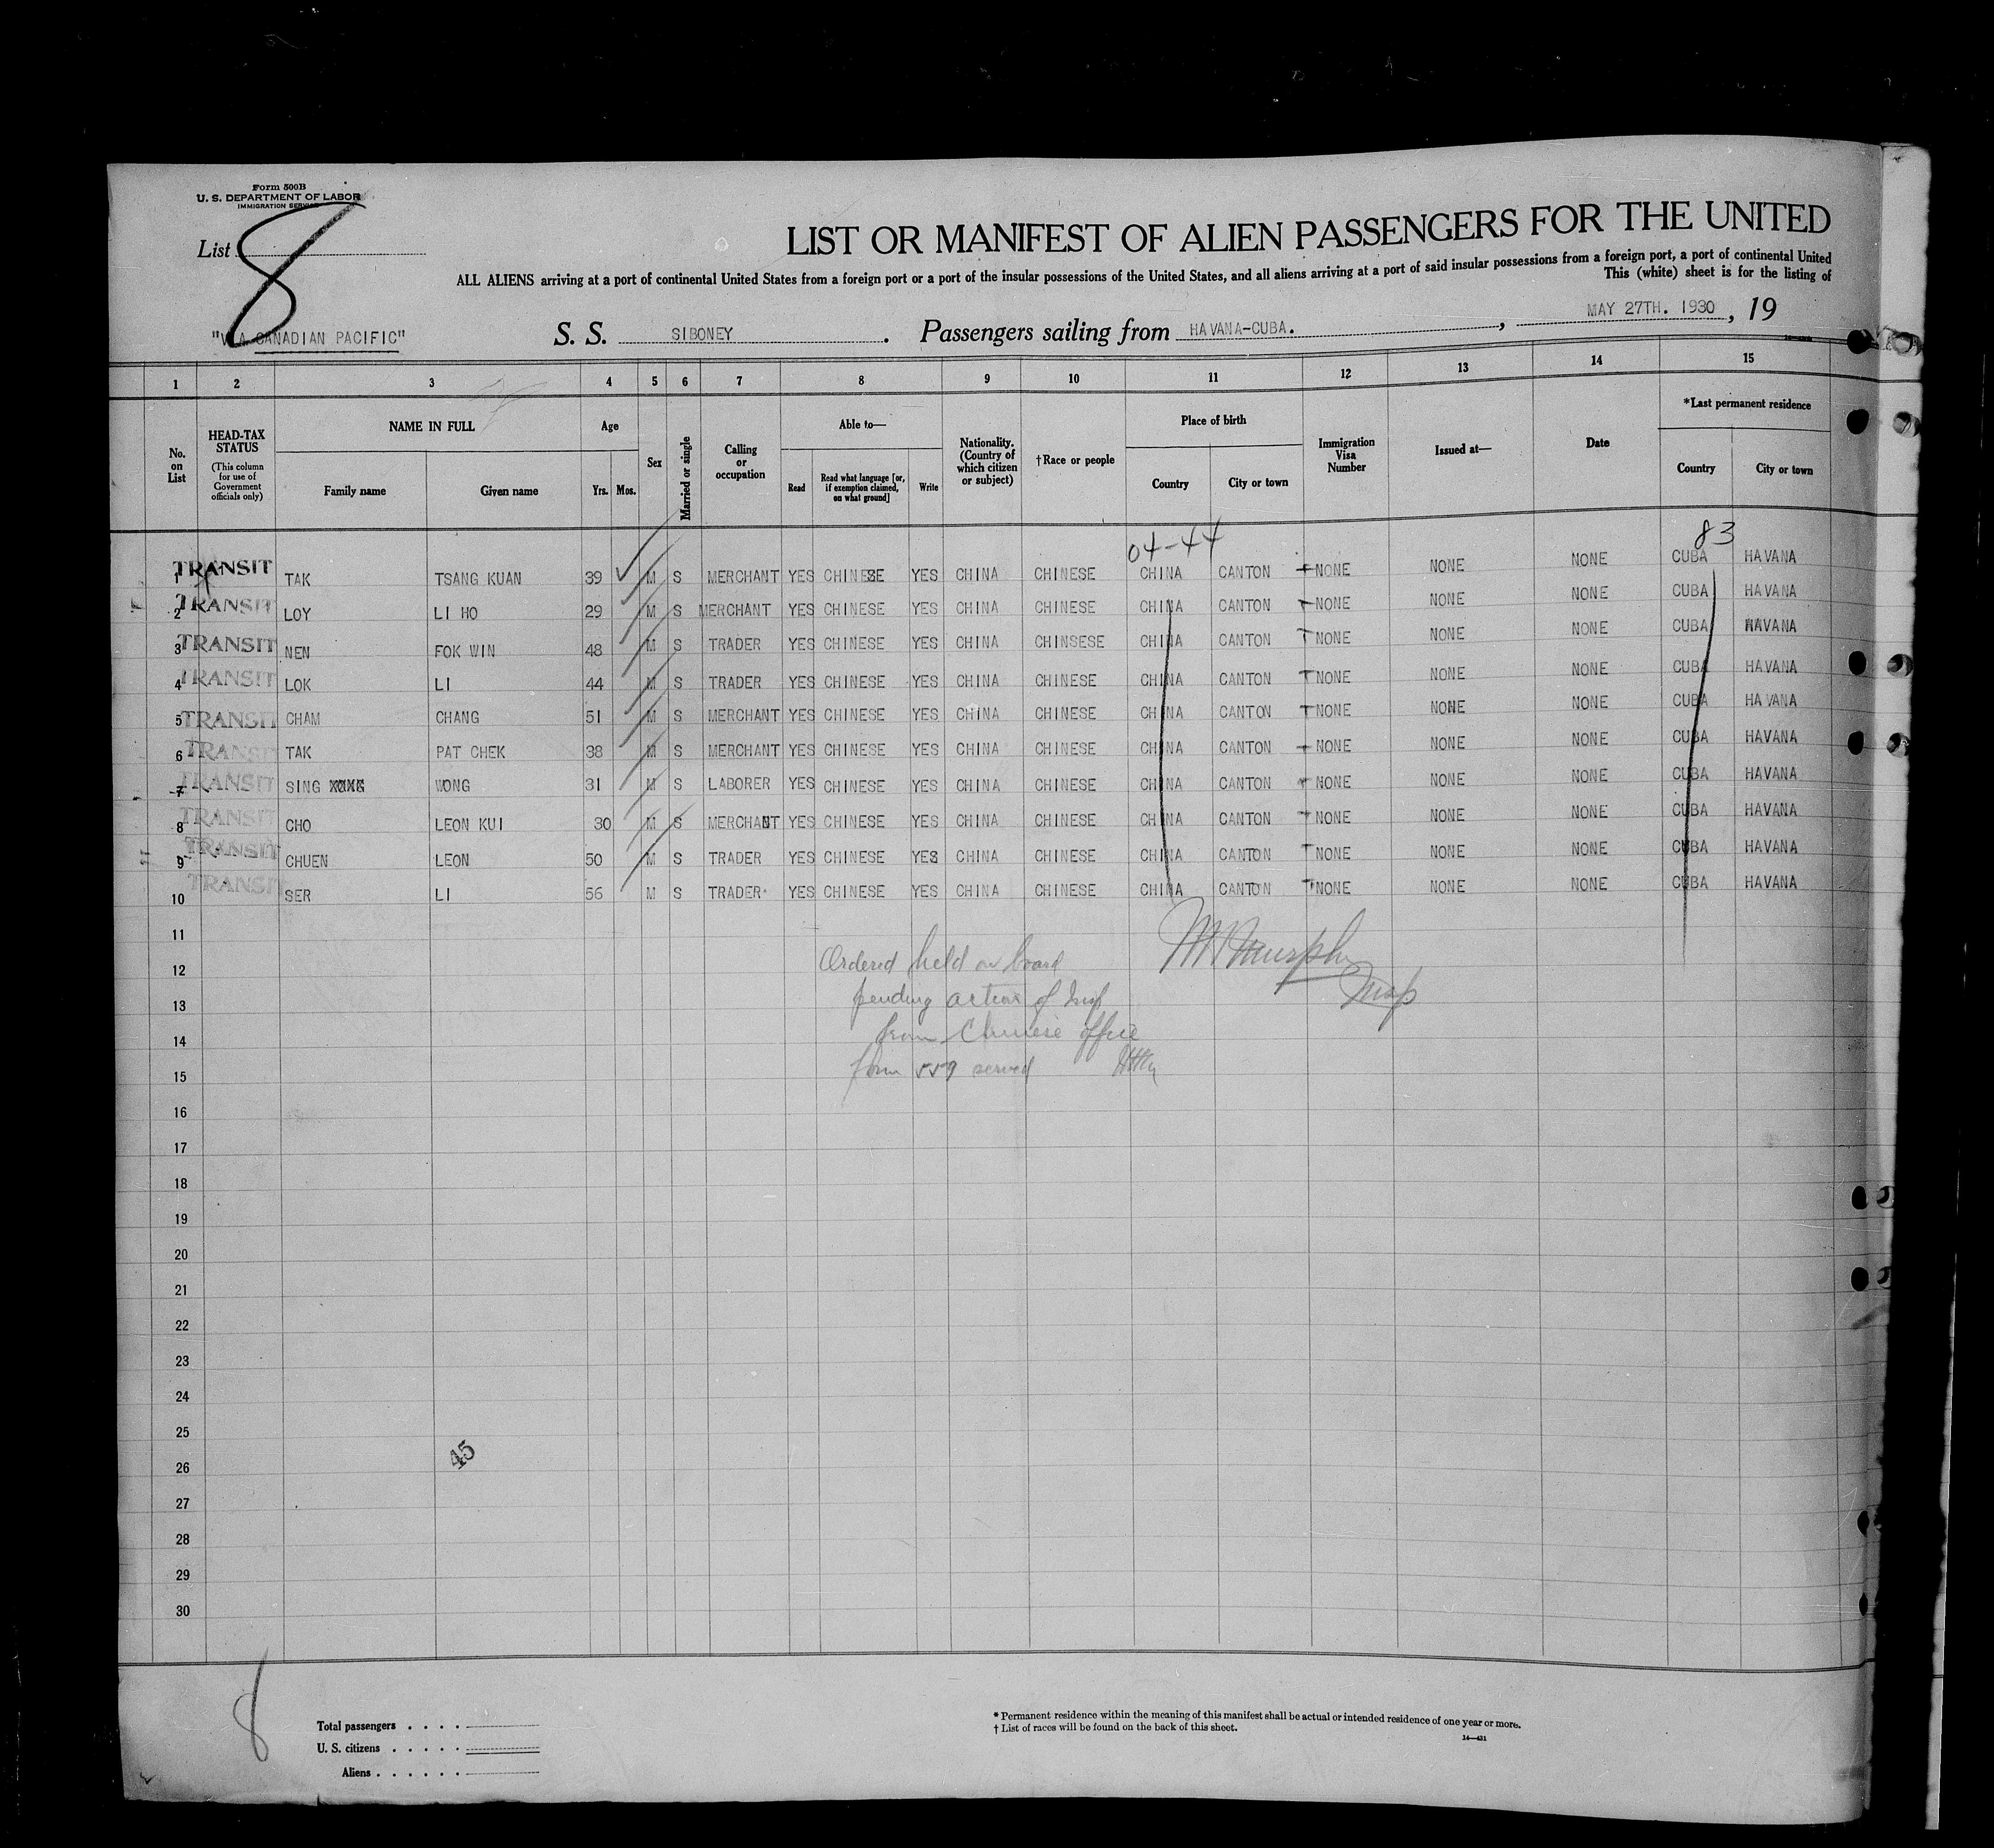 Form 500B
U. S. DEPARTMENT OF LABOR
IMMIGRATION SERVICE
List 8
LIST OR MANIFEST OF ALIEN PASSENGERS FOR THE UNITED
ALL ALIENS arriving at a port of continental United States from a foreign port or a port of the insular possessions of the United States, and all aliens arriving at a port of said insular possessions from a foreign port, a port of continental United
This (white) sheet is for the listing of
"VIA CANADIAN PACIFIC" S. S. SIBONEY . Passengers sailing from HAVANA-CUBA. , MAY 27TH. 1930 , 19
1 2 3 4 5 6 7 8 9 10 11 12 13 14 15
No. on List
HEAD-TAX STATUS (This column for use of Government officials only)
NAME IN FULL
Family name Given name
Age
Yrs. Mos.
Sex
Married or single
Calling or occupation
Able to—
Read
Read what language [or, if exemption claimed, on what ground]
Write
Nationality. (Country of which citizen or subject)
†Race or people
Place of birth
Country City or town
Immigration Visa Number
Issued at—
Date
*Last permanent residence
Country City or town
04-44 83
1 TRANSIT TAK TSANG KUAN 39 M S MERCHANT YES CHINESE YES CHINA CHINESE CHINA CANTON NONE NONE NONE CUBA HAVANA
2 TRANSIT LOY LI HO 29 M S MERCHANT YES CHINESE YES CHINA CHINESE CHINA CANTON NONE NONE NONE CUBA HAVANA
3 TRANSIT NEN FOK WIN 48 M S TRADER YES CHINESE YES CHINA CHINSESE CHINA CANTON NONE NONE NONE CUBA HAVANA
4 TRANSIT LOK LI 44 M S TRADER YES CHINESE YES CHINA CHINESE CHINA CANTON NONE NONE NONE CUBA HAVANA
5 TRANSIT CHAM CHANG 51 M S MERCHANT YES CHINESE YES CHINA CHINESE CHINA CANTON NONE NONE NONE CUBA HAVANA
6 TRANSIT TAK PAT CHEK 38 M S MERCHANT YES CHINESE YES CHINA CHINESE CHINA CANTON NONE NONE NONE CUBA HAVANA
7 TRANSIT SING WONG 31 M S LABORER YES CHINESE YES CHINA CHINESE CHINA CANTON NONE NONE NONE CUBA HAVANA
8 TRANSIT CHO LEON KUI 30 M S MERCHANT YES CHINESE YES CHINA CHINESE CHINA CANTON NONE NONE NONE CUBA HAVANA
9 TRANSIT CHUEN LEON 50 M S TRADER YES CHINESE YES CHINA CHINESE CHINA CANTON NONE NONE NONE CUBA HAVANA
10 TRANSIT SER LI 56 M S TRADER YES CHINESE YES CHINA CHINESE CHINA CANTON NONE NONE NONE CUBA HAVANA
11
12 Ordered held on board Murphy
13 pending action of Insp Insp
14 from Chinese office
15 form 559 served
16
17
18
19
20
21
22
23
24
25
45
26
27
28
29
30
8
Total passengers . . . .
U. S. citizens . . . . .
Aliens . . . . . .
* Permanent residence within the meaning of this manifest shall be actual or intended residence of one year or more.
† List of races will be found on the back of this sheet.
14—431